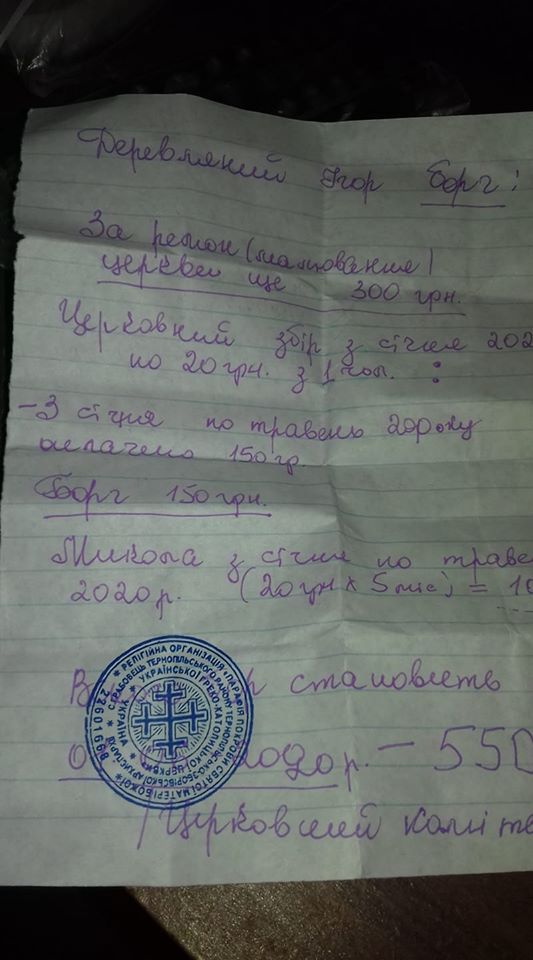 Деревляний Ігор Борг:
За ремон (малювання)
церкви ще 300 грн.
Церковний збір з січня 202
по 20 грн. з 1 чол. :
- З січня по травень 20 року
оплачено 150 гр.
Борг 150 грн.
Микола з січня по траве
2020 р. (20 грн х 5 міс) = 10
становить
2020 р. - 550
/Церковний коміте
РЕЛІГІЙНА ОРГАНІЗАЦІЯ • ПАРАФІЯ ПОКРОВИ СВЯТОЇ МАТЕРІ БОЖОЇ
ТЕРНОПІЛЬСЬКОГО РАЙОНУ ТЕРНОПІЛЬСЬКО-ЗБОРІВСЬКОЇ АРХИЄПАРХІЇ
УКРАЇНСЬКОЇ ГРЕКО-КАТОЛИЦЬКОЇ ЦЕРКВИ
УКРАЇНА